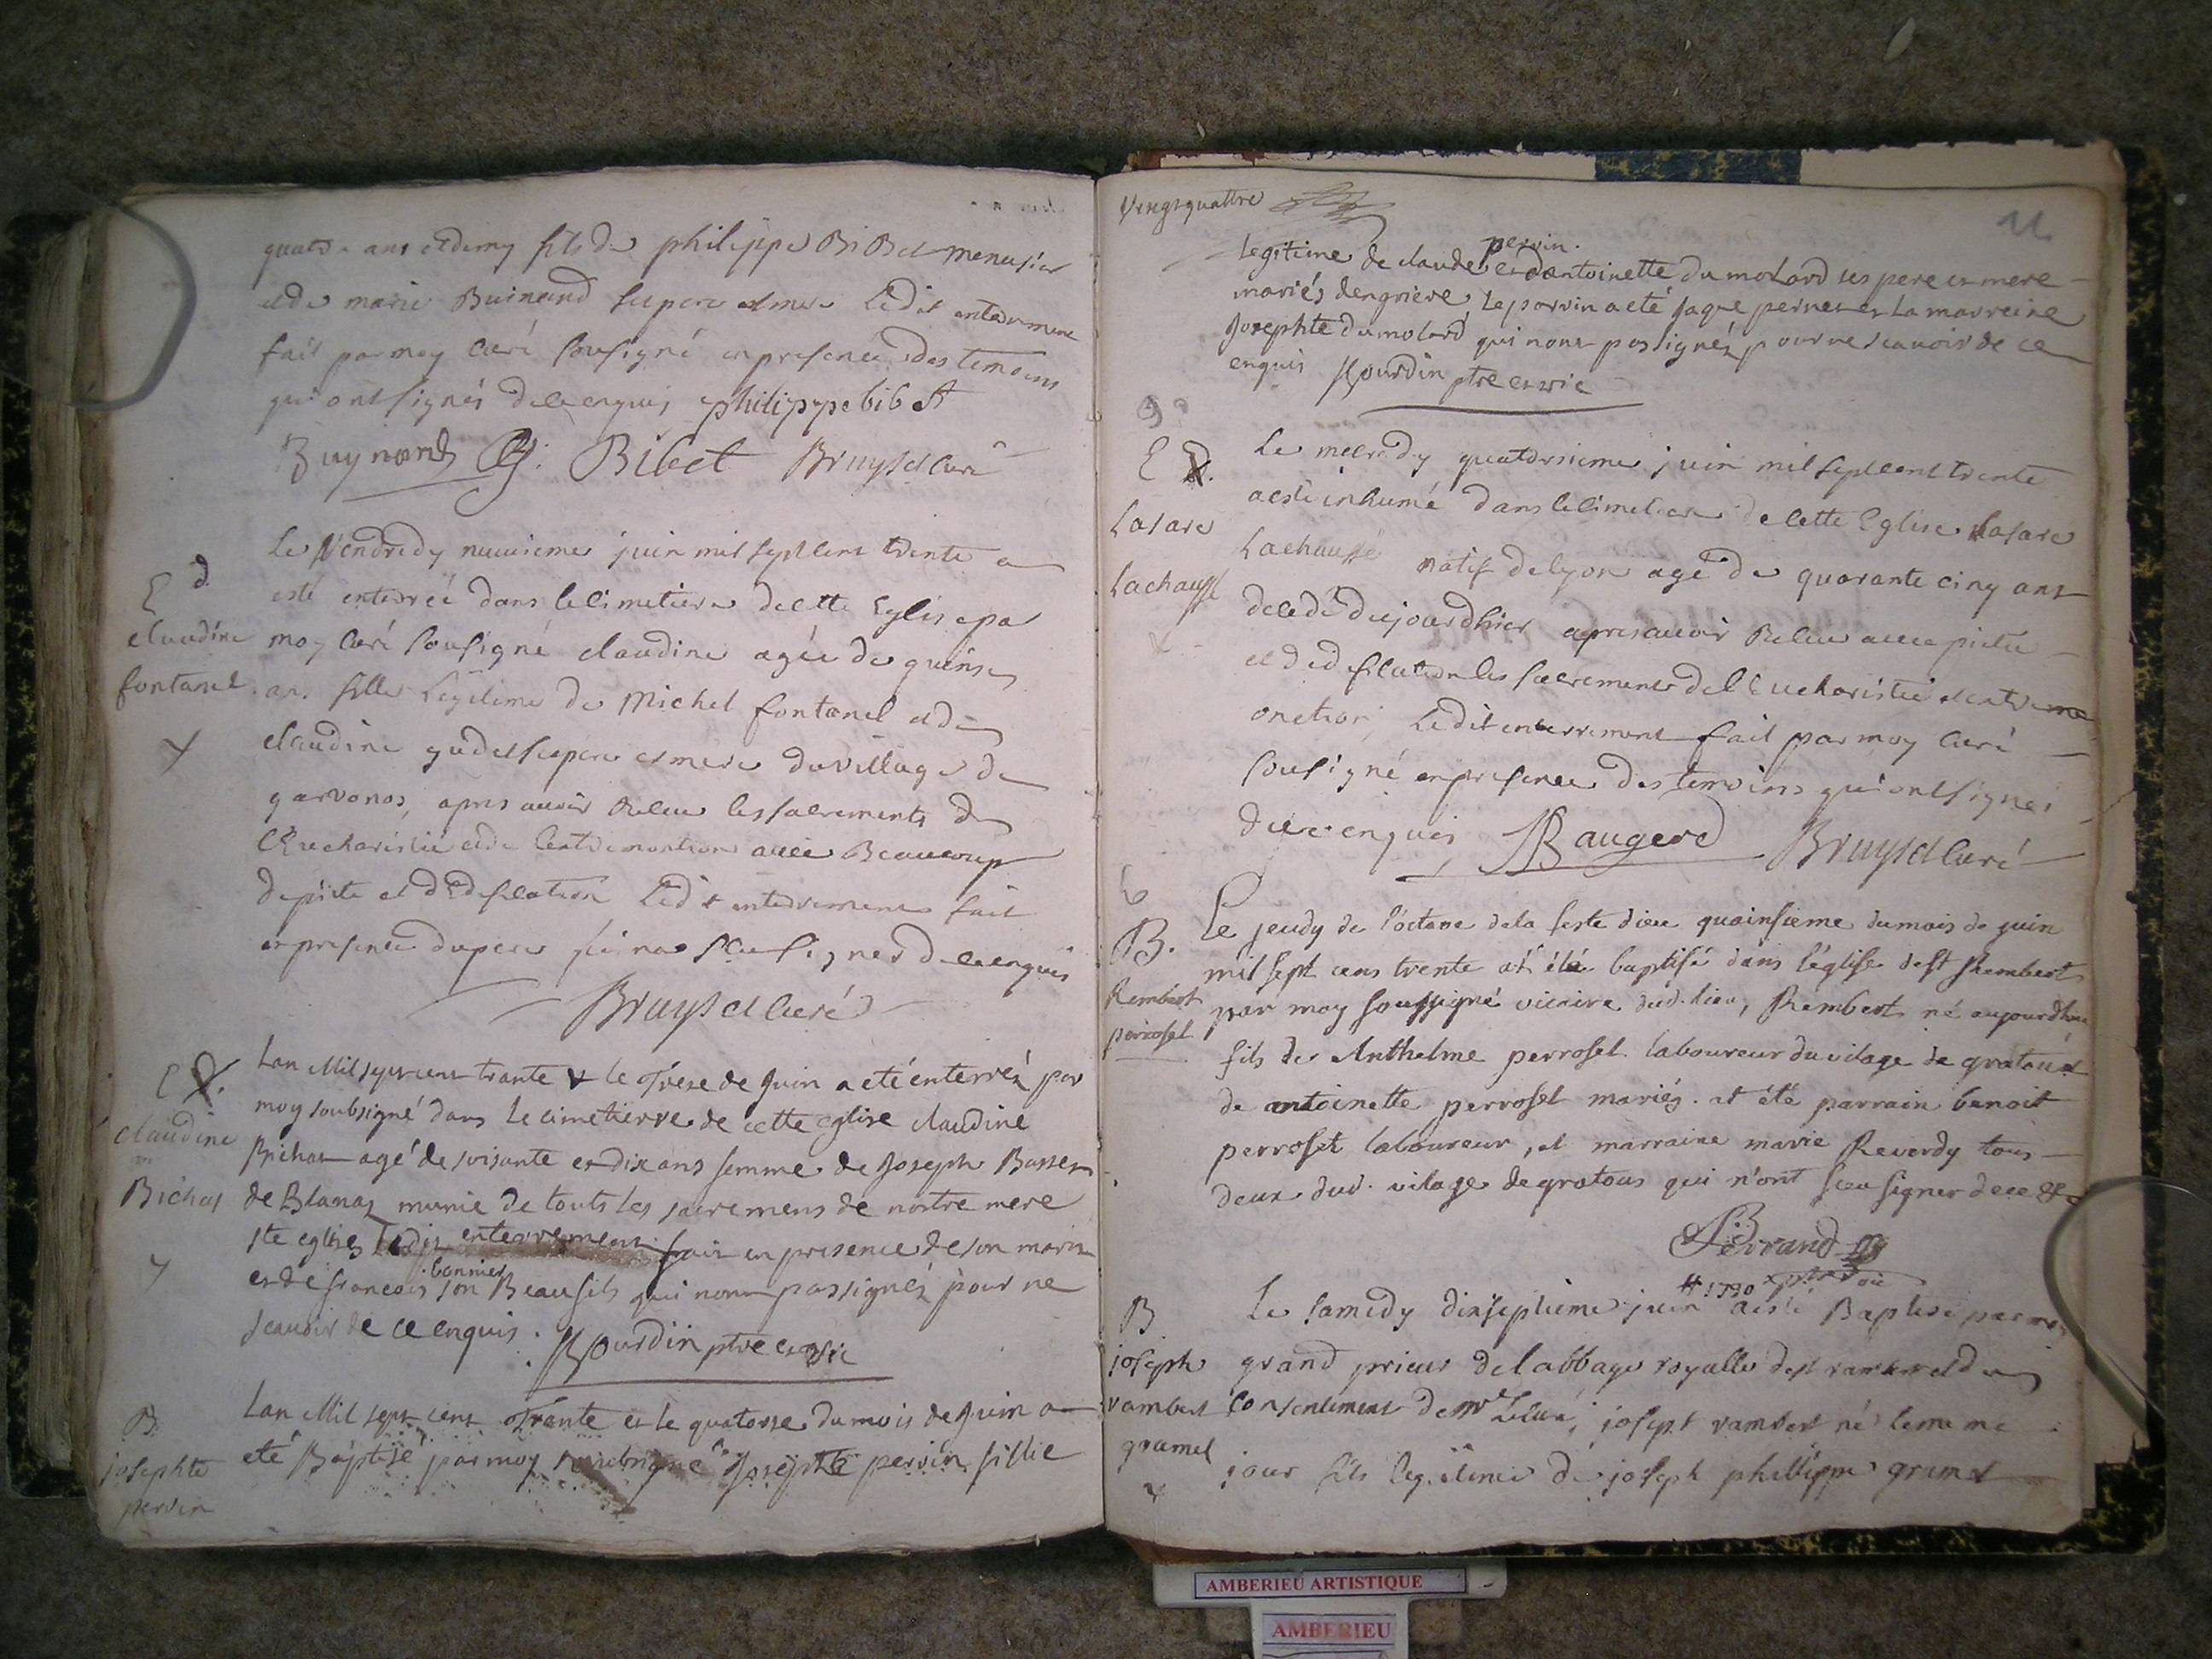 quatre ans et demy fils de philippe BiBet menusier
et de marie Buinand ses pere et mere Ledit enterrement
fait par moy Curé sousigné en presence des temoins
qui ont signés de ce enquis philippe bibet
Buynand Bibet Bruyset Curé
E d.
claudine
fontanel
Le Vendredy neuvieme juin mil sept cent trente a
esté enterrée dans le cimetiere de cette Eglise par
moy Curé sousigné claudine agée de quinse
ans fille Legitime de Michel fontanel et de
claudine gudet ses pere et mere du village de
garvonos, apres avoir Receu les sacrements de
l'Eucharistie et de l'extremontion avec Beaucoup
de pieté et d'Edification Ledit enterrement fait
en presence du pere qui na sceu signer de ce enquis
Bruyset Curé
E d.
claudine
Bichat
Lan Mil sept cent trante & le treze de Juin a eté enterréz par
moy soubsigné dans le cimetierre de cette eglise claudine
Bichat agé de soisante et dix ans femme de Joseph Basset
de Blanaz munie de touts les sacremens de nostre mere
ste eglise, Ledit enterrement fait en presence de son maris
et de francois son bonnier Beau fils qui nont pas signéz pour ne
scavoir de ce enquis. Hourdin ptre et vic
B.
josephte
pervin
Lan Mil sept cent Trente et le quatorse du mois de Juin a
eté Baptisé par moy soubsigné Josephte pervin fillie
Vengtquattre
11
legitime de claude pervin et dantoinette du molard ses pere et mere
mariés dengrieve, le parvin a eté Jaque pernet et la marreine
Josephte du molard qui nont pas signéz pour ne scavoir de ce
enquis Hourdin ptre et vic
E d.
Lasare
Lachausse
Le mecredy quatorsieme juin mil sept cent trente
a esté inhumé dans le cimetiere de cette Eglise Lasare
Lachausse natif de lyon agé de quarante cinq ans
decedé du jourdhier apres avoir Receu avec pieté
et d'edification les sacrements de l'Eucharistie et extreme
onction, Ledit enterrement fait par moy Curé
sousigné en presence des temoins qui ont signés
de ce enquis Baugerd Bruyset Curé
B.
Rembert
perroset
Le jeudy de l'octave de la feste dieu quainsieme du mois de juin
mil sept cens trente at été baptisé dans l'église de st Rembert
par moy soussigné vicaire dud. lieu, Rembert né aujourdhuy
fils de Anthelme perroset laboureur du vilage de gratoux
de antoinette perroset mariés. at été parrain benoit
perroset laboureur, et marraine marie Reverdy tous
deux dud. vilage de gratous qui n'ont sceu signer de ce &c
Ferrand
B
joseph
rambert
gramet
Le samedy dixseptieme juin # 1730 a esté Baptisé par moy
grand prieur de l'abbaye royalle de st rambert du
Consentement de Mr Le Curé, joseph rambert né le meme
jour fils legitime de joseph philippe gramet
AMBERIEU ARTISTIQUE
AMBERIEU